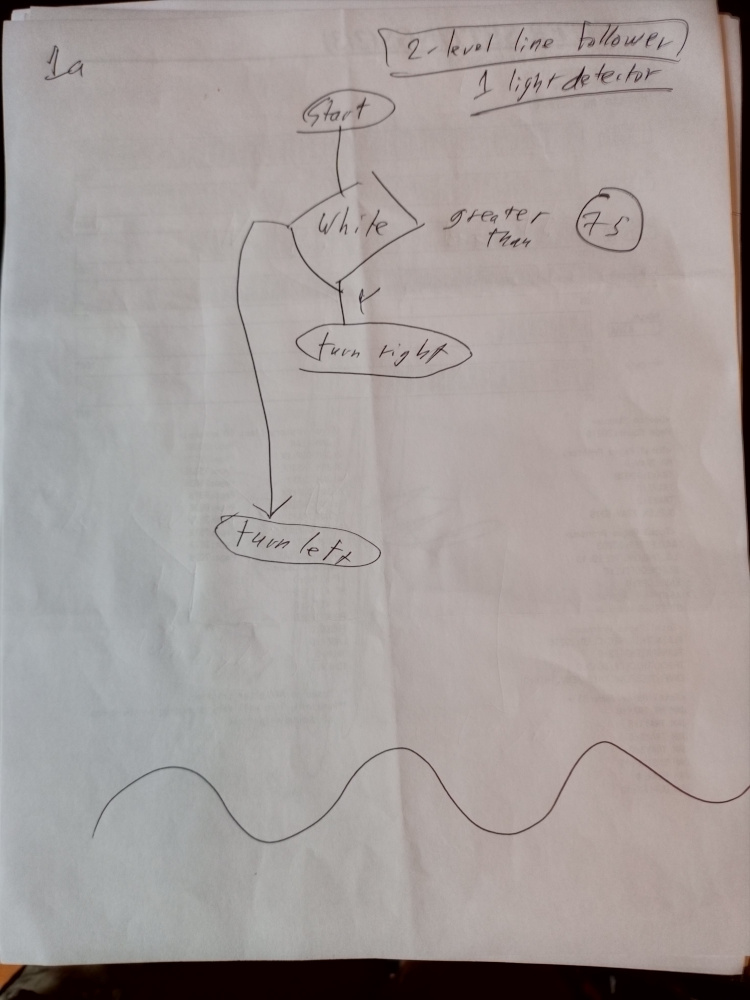 1a
2-level line follower
1 light detector
Start
White
greater
than
75
Y
turn right
turn left